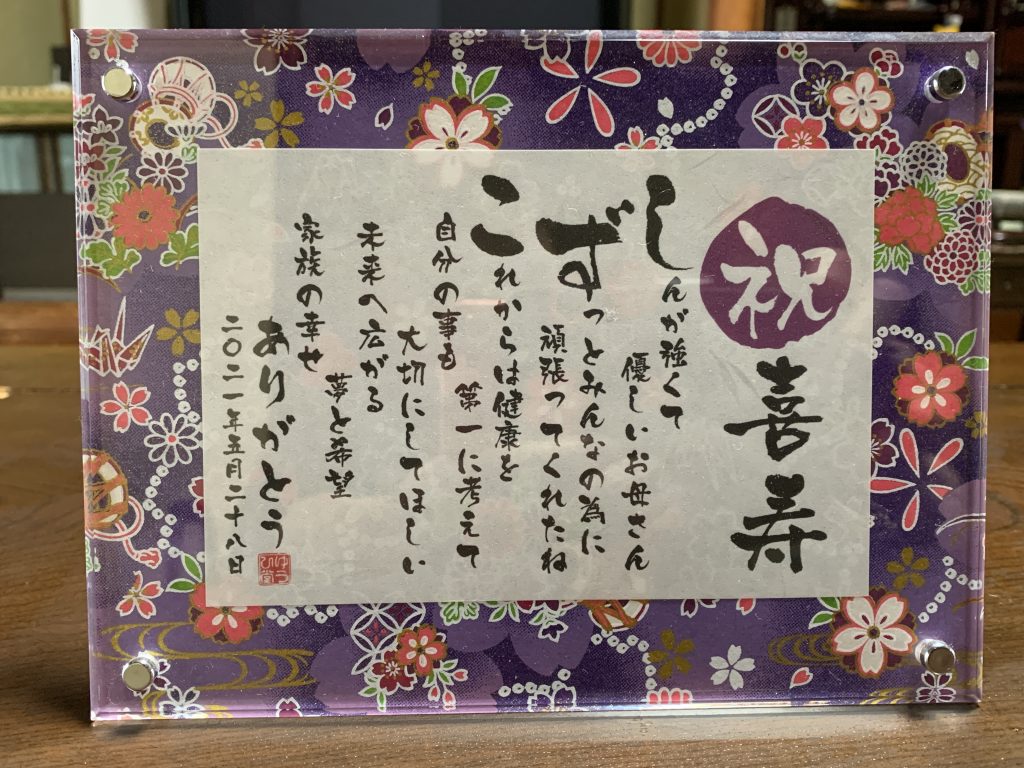 祝
喜寿
しんが強くて
優しいお母さん
ずっとみんなの為に
頑張ってくれたね
これからは健康を
第一に考えて
自分の事も
大切にしてほしい
未来へ広がる
夢と希望
家族の幸せ
ありがとう
二〇二一年五月二十八日
ゆうひ堂